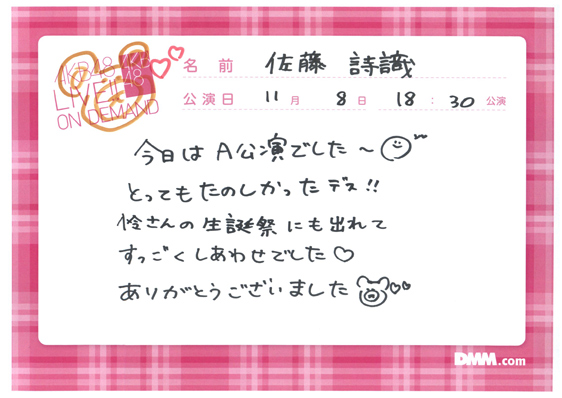 AKB48
LIVE!!
ON DEMAND
AKB
48
名前 佐藤 詩識
公演日 11月 8日 18:30 公演
今日は A公演でした〜
とってもたのしかったデス!!
怜さんの生誕祭にも出れて
すっごくしあわせでした♡
ありがとうございました
DMM.com